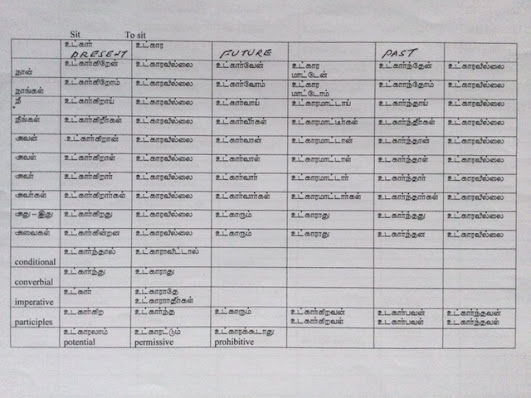 Sit To sit
உட்கார் உட்கார
PRESENT FUTURE PAST
நான் உட்கார்கிறேன் உட்காரவில்லை உட்கார்வேன் உட்கார மாட்டேன் உட்கார்ந்தேன் உட்காரவில்லை
நாங்கள் உட்கார்கிறோம் உட்காரவில்லை உட்கார்வோம் உட்கார மாட்டோம் உட்கார்ந்தோம் உட்காரவில்லை
நீ உட்கார்கிறாய் உட்காரவில்லை உட்கார்வாய் உட்காரமாட்டாய் உட்கார்ந்தாய் உட்காரவில்லை
நீங்கள் உட்கார்கிறீர்கள் உட்காரவில்லை உட்கார்வீர்கள் உட்காரமாட்டீர்கள் உட்கார்ந்தீர்கள் உட்காரவில்லை
அவன் உட்கார்கிறான் உட்காரவில்லை உட்கார்வான் உட்காரமாட்டான் உட்கார்ந்தான் உட்காரவில்லை
அவள் உட்கார்கிறாள் உட்காரவில்லை உட்கார்வாள் உட்காரமாட்டாள் உட்கார்ந்தாள் உட்காரவில்லை
அவர் உட்கார்கிறார் உட்காரவில்லை உட்கார்வார் உட்காரமாட்டார் உட்கார்ந்தார் உட்காரவில்லை
அவர்கள் உட்கார்கிறார்கள் உட்காரவில்லை உட்கார்வார்கள் உட்காரமாட்டார்கள் உட்கார்ந்தார்கள் உட்காரவில்லை
அது – இது உட்கார்கிறது உட்காரவில்லை உட்காரும் உட்காராது உட்கார்ந்தது உட்காரவில்லை
அவைகள் உட்கார்கின்றன உட்காரவில்லை உட்காரும் உட்காராது உட்கார்ந்தன உட்காரவில்லை
conditional உட்கார்ந்தால் உட்காராவிட்டால்
converbial உட்கார்ந்து உட்காராது
imperative உட்கார் உட்காராதே
உட்காராதீர்கள்
participles உட்கார்கிற உட்கார்ந்த உட்காரும் உட்கார்கிறவன் உட்கார்பவன் உட்கார்ந்தவன்
உட்கார்கிறவள் உட்கார்பவள் உட்கார்ந்தவள்
உட்காரலாம் உட்காரட்டும் உட்காரக்கூடாது
potential permissive prohibitive